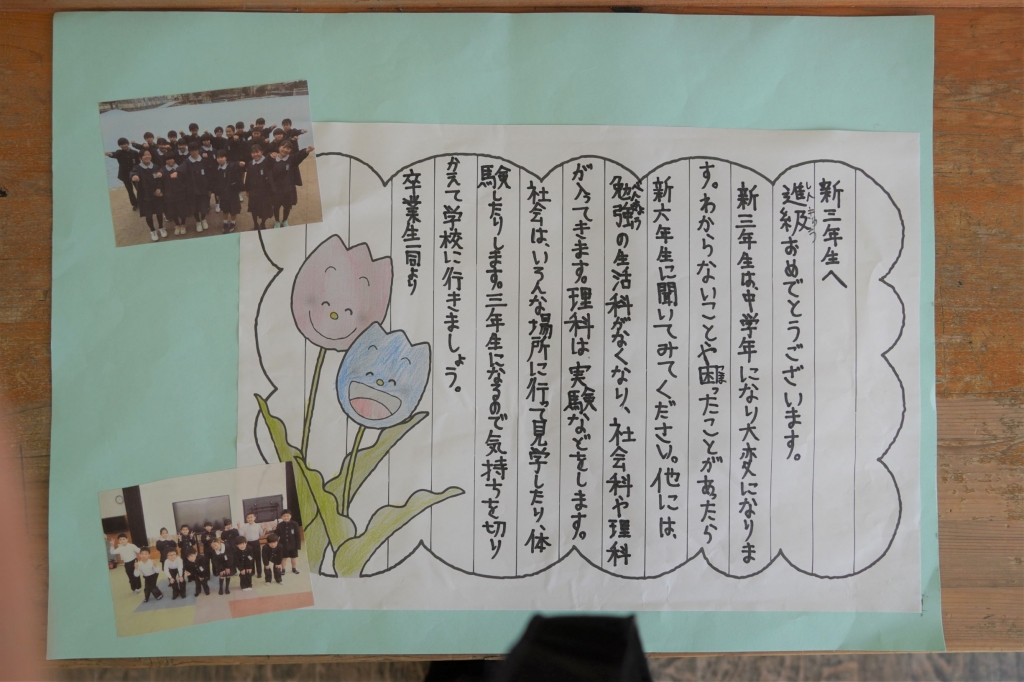 新三年生へ
進級おめでとうございます。
新三年生は、中学年になり大変になりま
す。わからないことや困ったことがあったら
新六年生に聞いてみてください。他には、
勉強の生活科がなくなり、社会科や理科
が入ってきます。理科は、実験などをします。
社会は、いろんな場所に行って見学したり、体
験したりします。三年生になるので気持ちを切り
かえて学校に行きましょう。
卒業生一同より